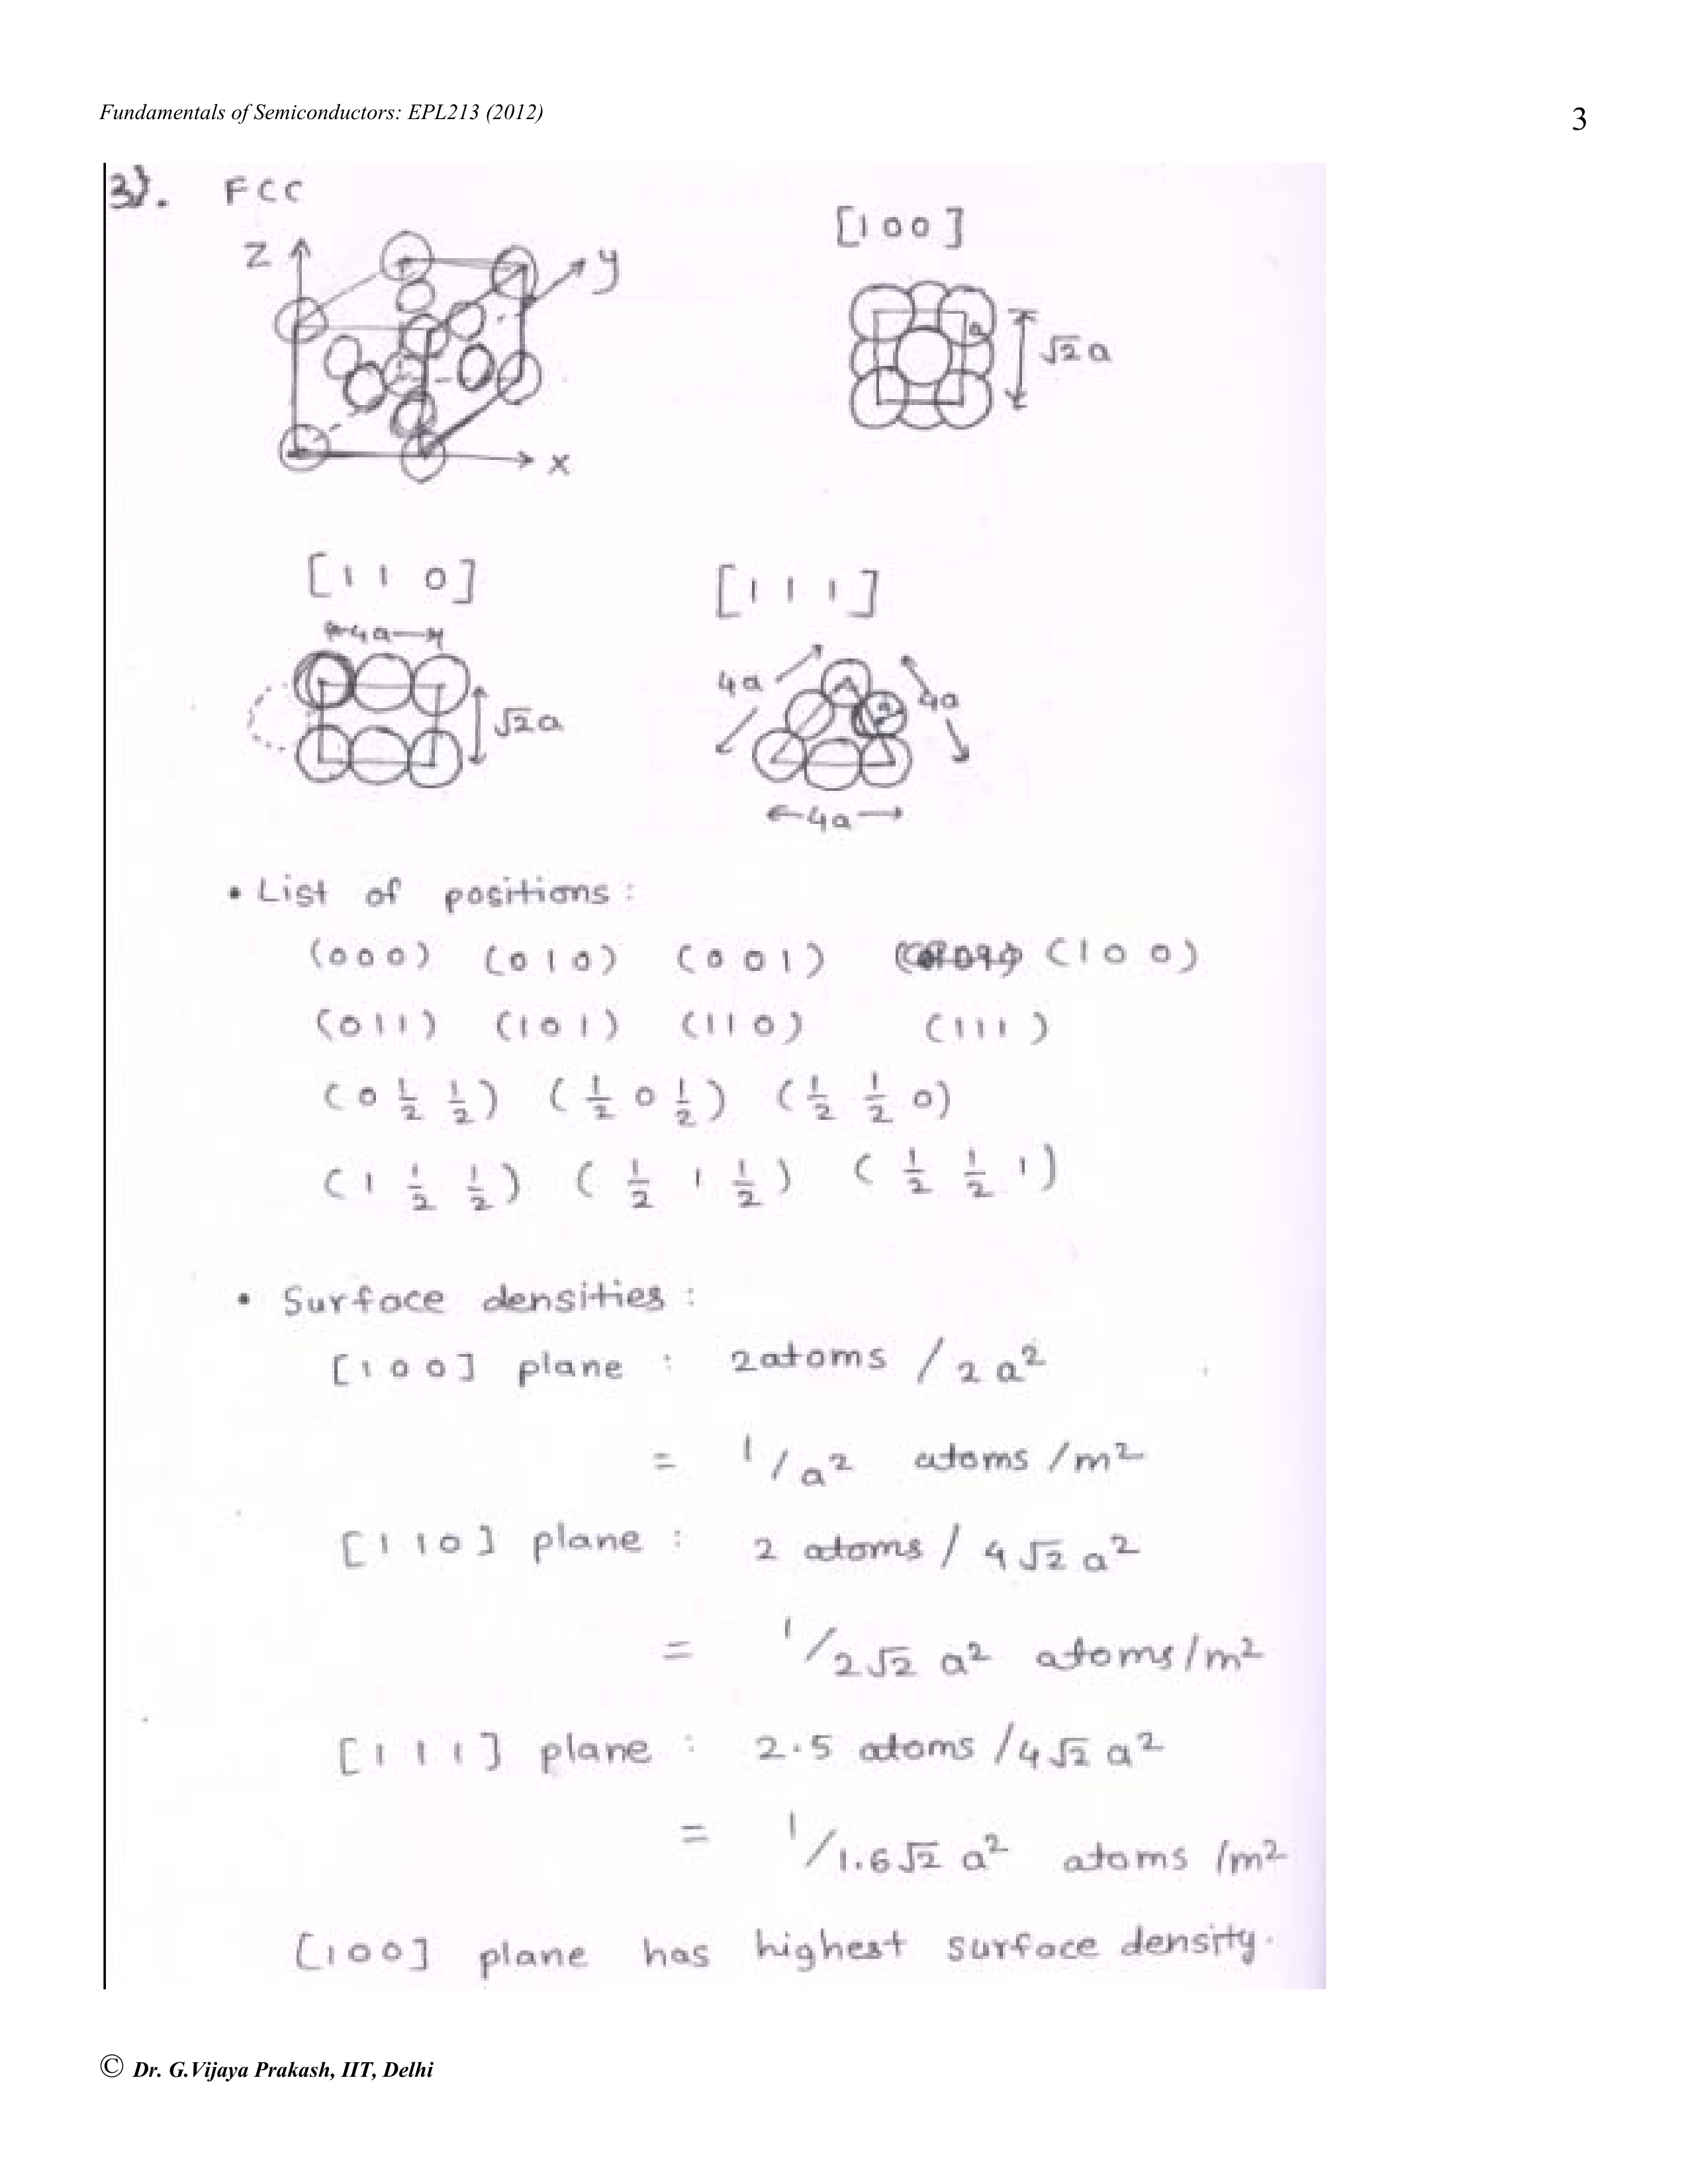 Fundamentals of Semiconductors: EPL213 (2012)
3
3). FCC
[100]
z
y
x
a
√2a
[110]
4a
√2a
[111]
4a
a
4a
4a
• List of positions:
(000) (010) (001) (100)
(011) (101) (110) (111)
(0 1/2 1/2) (1/2 0 1/2) (1/2 1/2 0)
(1 1/2 1/2) (1/2 1 1/2) (1/2 1/2 1)
• Surface densities:
[100] plane : 2atoms / 2a²
= 1/a² atoms /m²
[110] plane : 2 atoms / 4√2 a²
= 1/2√2 a² atoms/m²
[111] plane : 2.5 atoms /4√2 a²
= 1/1.6√2 a² atoms /m²
[100] plane has highest surface density.
© Dr. G.Vijaya Prakash, IIT, Delhi